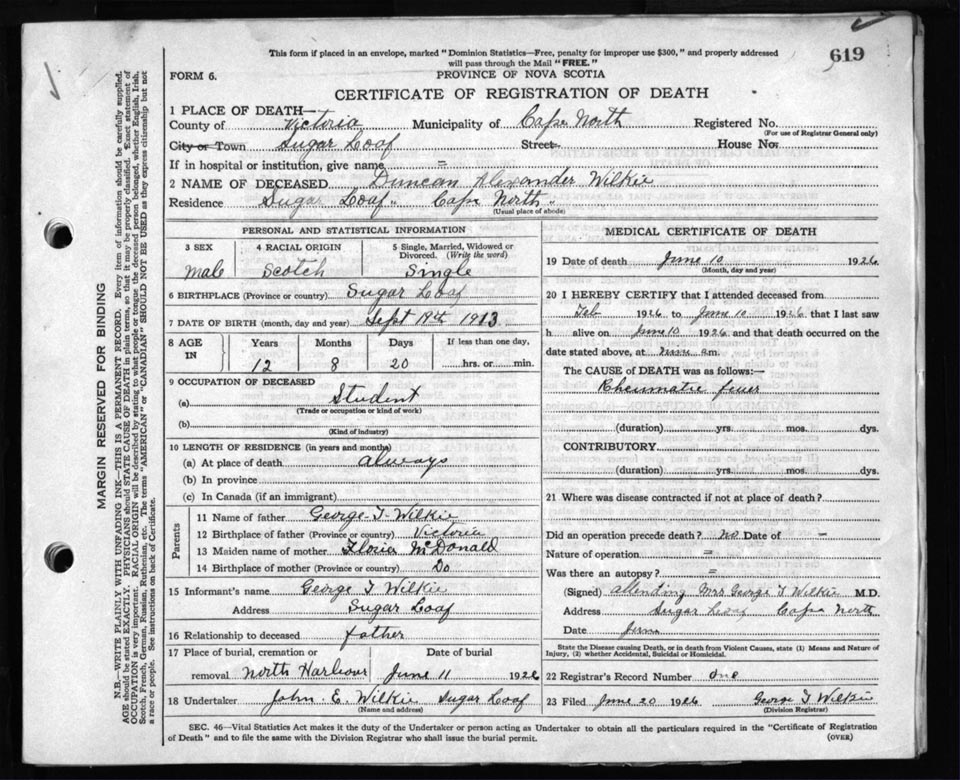 This form if placed in an envelope, marked "Dominion Statistics—Free, penalty for improper use $300," and properly addressed
will pass through the Mail "FREE."
619
FORM 6.
PROVINCE OF NOVA SCOTIA
CERTIFICATE OF REGISTRATION OF DEATH
1 PLACE OF DEATH—
County of Victoria Municipality of Cape North Registered No.
(For use of Registrar General only)
City or Town Sugar Loaf Street House No.
If in hospital or institution, give name =
2 NAME OF DECEASED Duncan Alexander Wilkie
Residence Sugar Loaf " Cape North "
(Usual place of abode)
PERSONAL AND STATISTICAL INFORMATION
3 SEX 4 RACIAL ORIGIN 5 Single, Married, Widowed or
Divorced. (Write the word)
male Scotch Single
6 BIRTHPLACE (Province or country) Sugar Loaf
7 DATE OF BIRTH (month, day and year) Sept 19th 1913
8 AGE IN Years Months Days If less than one day,
12 8 20 hrs. or min.
9 OCCUPATION OF DECEASED
(a) Student
(Trade or occupation or kind of work)
(b)
(Kind of industry)
10 LENGTH OF RESIDENCE (in years and months)
(a) At place of death always
(b) In province
(c) In Canada (if an immigrant)
Parents
11 Name of father George T Wilkie
12 Birthplace of father (Province or country) Victoria
13 Maiden name of mother McDonald
14 Birthplace of mother (Province or country) Do
15 Informant's name George T Wilkie
Address Sugar Loaf
16 Relationship to deceased father
17 Place of burial, cremation or Date of burial
removal North Harbour June 11 1926
18 Undertaker John E. Wilkie Sugar Loaf
(Name and address)
MEDICAL CERTIFICATE OF DEATH
19 Date of death June 10 1926
(Month, day and year)
20 I HEREBY CERTIFY that I attended deceased from
Feb 1926 to June 10 1926 that I last saw
h alive on June 10 1926 and that death occurred on the
date stated above, at m.
The CAUSE of DEATH was as follows:—
Rheumatic fever
(duration) yrs. mos. dys.
CONTRIBUTORY.
(duration) yrs. mos. dys.
21 Where was disease contracted if not at place of death?
Did an operation precede death? no Date of —
Nature of operation =
Was there an autopsy? =
(Signed) attending Mrs George T Wilkie M.D.
Address Sugar Loaf Cape North
Date June
State the Disease causing Death, or in death from Violent Causes, state (1) Means and Nature of
Injury, (2) whether Accidental, Suicidal or Homicidal.
22 Registrar's Record Number one
23 Filed June 20 1926 George T Wilkie
(Division Registrar)
SEC. 46—Vital Statistics Act makes it the duty of the Undertaker or person acting as Undertaker to obtain all the particulars required in the "Certificate of Registration
of Death" and to file the same with the Division Registrar who shall issue the burial permit.
(OVER)
MARGIN RESERVED FOR BINDING
N.B.—WRITE PLAINLY WITH UNFADING INK—THIS IS A PERMANENT RECORD. Every item of information should be carefully supplied.
AGE should be stated EXACTLY. PHYSICIANS should STATE CAUSE OF DEATH in plain terms, so that it may be properly classified. Exact statement of
OCCUPATION is very important. RACIAL ORIGIN will be described by stating to what people or tongue the deceased person belonged, whether English, Irish,
Scotch, French, German, Russian, Ruthenian, etc. The terms "AMERICAN" or "CANADIAN" SHOULD NOT BE USED as they express citizenship but not
a race or people. See instructions on back of Certificate.